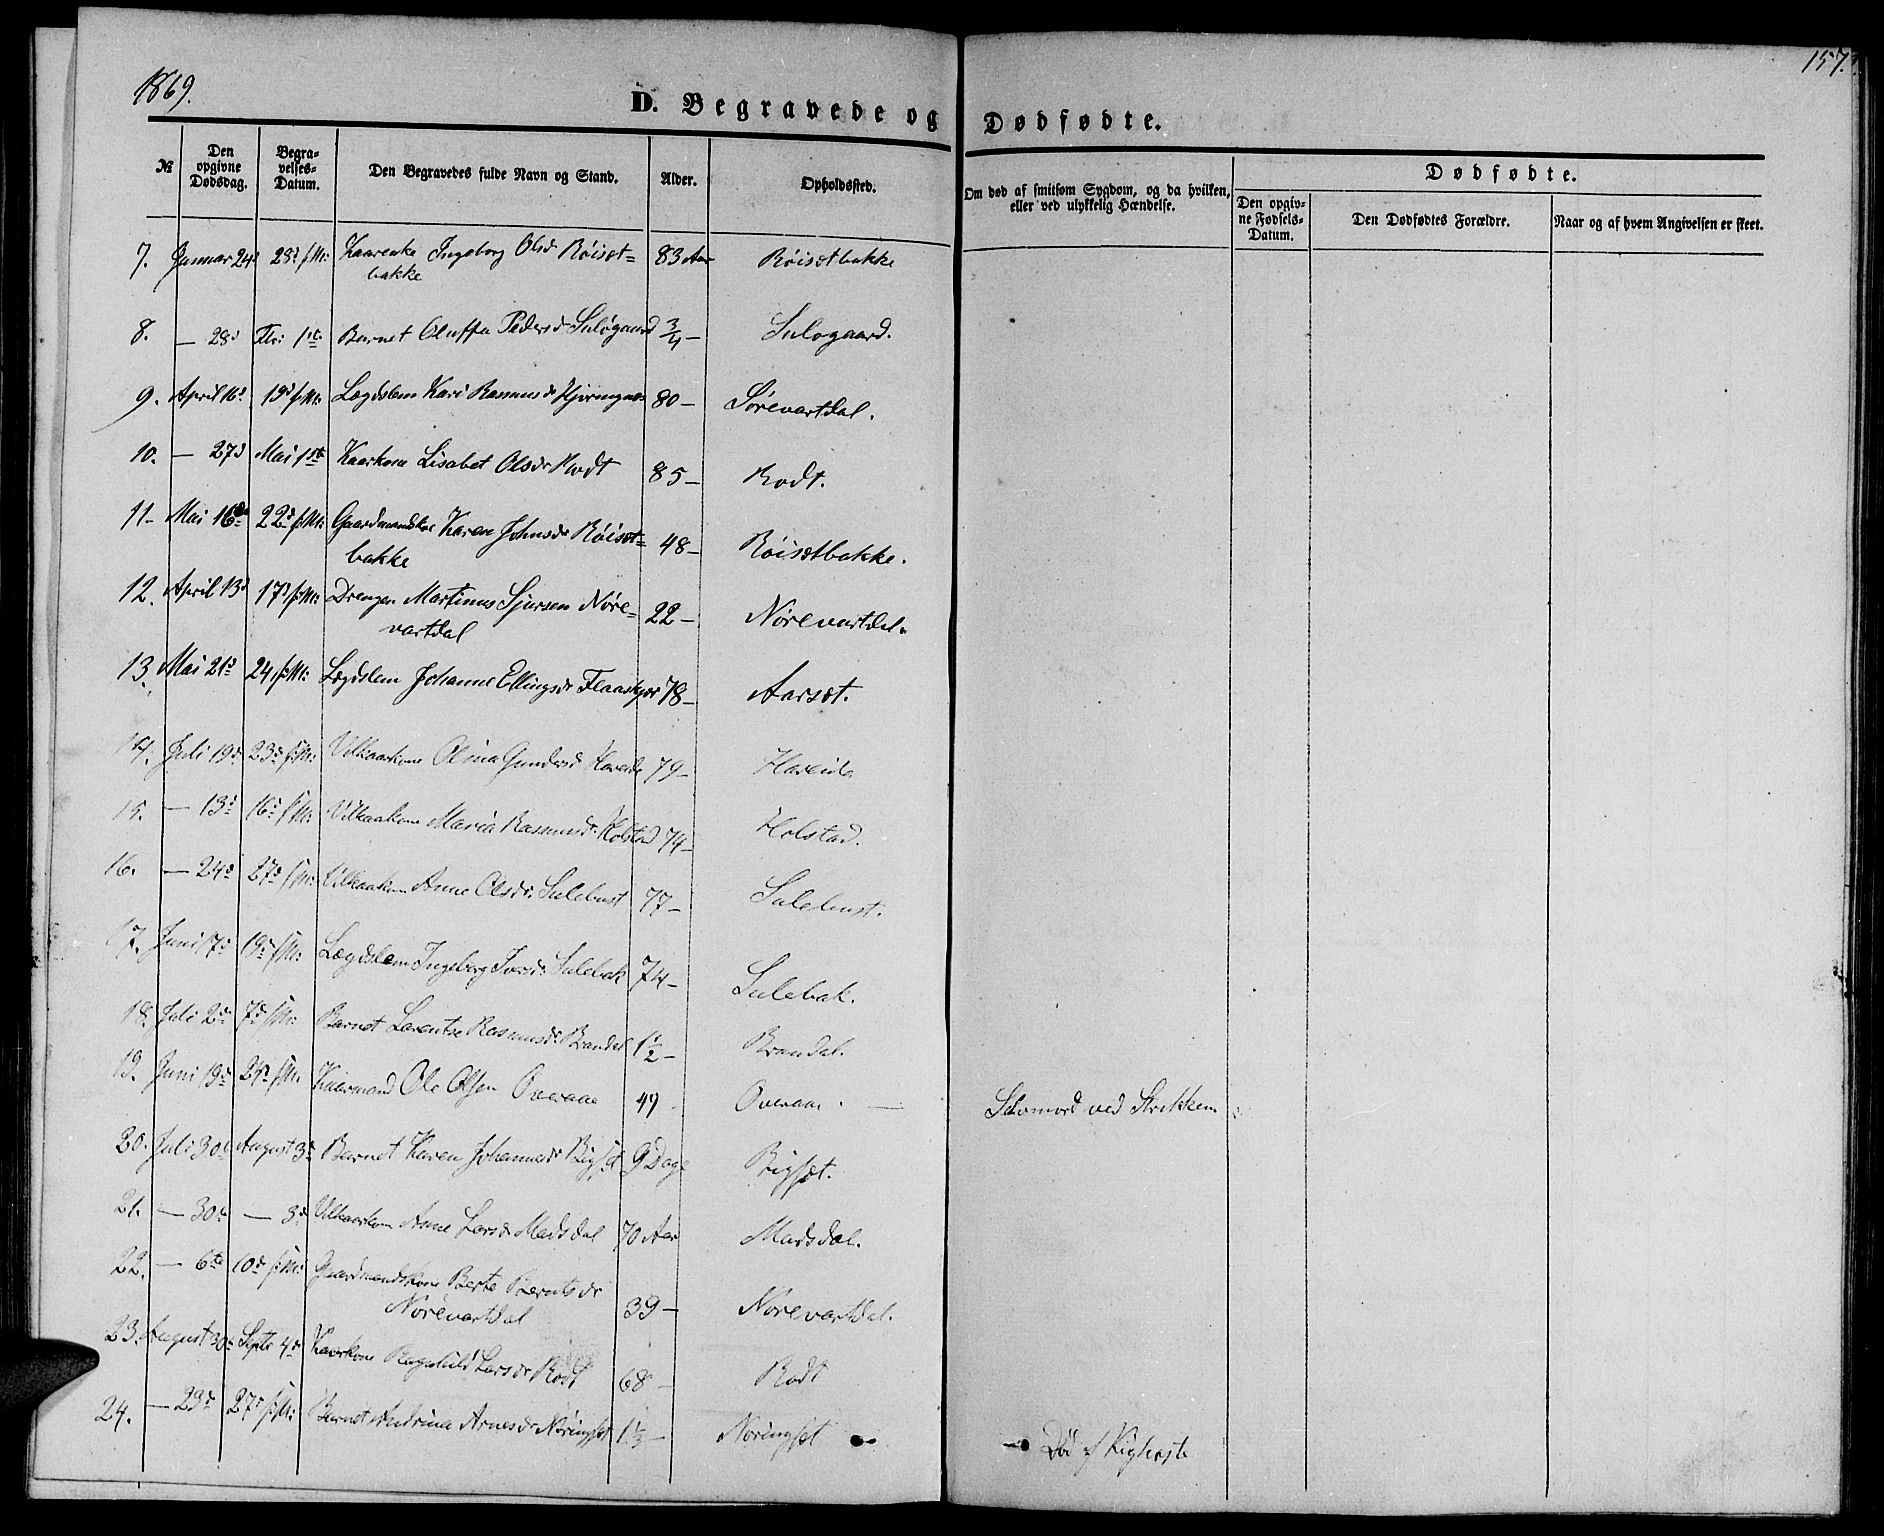 1869.
157.
D. Begravede og Dødfødte.
№
Den opgivne Dødsdag.
Begravelses-Datum.
Den Begravedes fulde Navn og Stand.
Alder.
Opholdssted.
Om død af smitsom Sygdom, og da hvilken, eller ved ulykkelig Hændelse.
Dødfødte.
Den opgivne Fødsels-Datum.
Den Dødfødtes Forældre.
Naar og af hvem Angivelsen er skeet.
7. Januar 24 28 s.M: Ingeborg Olsd Röiset= 83 Aar Röisetbakke
bakke
8. — 28 1ste Barnet Oluffa Pedersd Sulögaard 3/4 — Sulogaard.
9. April 16 19 s.M: Lægdslem Kari Rasmusdr Hjörungnes 80 — Sörevartdal.
10. — 27 Mai 1ste Kaarkone Lisabet Olsdr Rodt 85 — Rodt.
11. Mai 16de 22 s.M: Gaardmandskone Karen Johnsdr Röiset= 48 — Röisetbakke.
bakke
12. April 13 17 s.M: Drengen Martinus Sjursen Nöre= 22 — Nörevartdal.
vartdal
13. Mai 21 24 s.M: Lægdslem Johanne Ellingsdr Flaaskjær 78 — Aarset.
14. Juli 19 23 s.M: Vilkaarkone Olina Gundersd Hareide 79 — Hareide
15. — 13 16 s.M: Vilkaarkone Maria Rasmusdr Holstad 74 — Holstad.
16. — 24 27 s.M: Vilkaarkone Anne Olsdr Sulebust 77 — Sulebust.
17. Juni 17 19 s.M: Lægdslem Ingeborg Iversdr Sulebak 74 — Sulebak.
18. Juli 2 7 s.M: Barnet Lorentse Rasmusdr Brandal 1 1/2 — Brandal.
19. Juni 19 24 s.M. Kaarmand Ole Olsen Overaae 49 — Overaae. — Selvmord ved Strikken
20. Juli 30 August 3 Barnet Karen Johannesdr Bigset 9 Dage Bigset.
21. — 30 — 3 Vilkaarkone Anne Larsdr Madsdal 70 Aar Madsdal.
22. — 6te 10 s.M: Gaardmandskone Berte Berntsdr 39 — Nörevartdal.
Nörevartdal
23. August 30 Septr 4 Kaarkone Ragnhild Larsdr Rodt 68 — Rodt
24. — 23 27 s.M: Barnet Andrina Arnesdr Nöringset 1 1/3 — Noringset — — Död af Kighoste